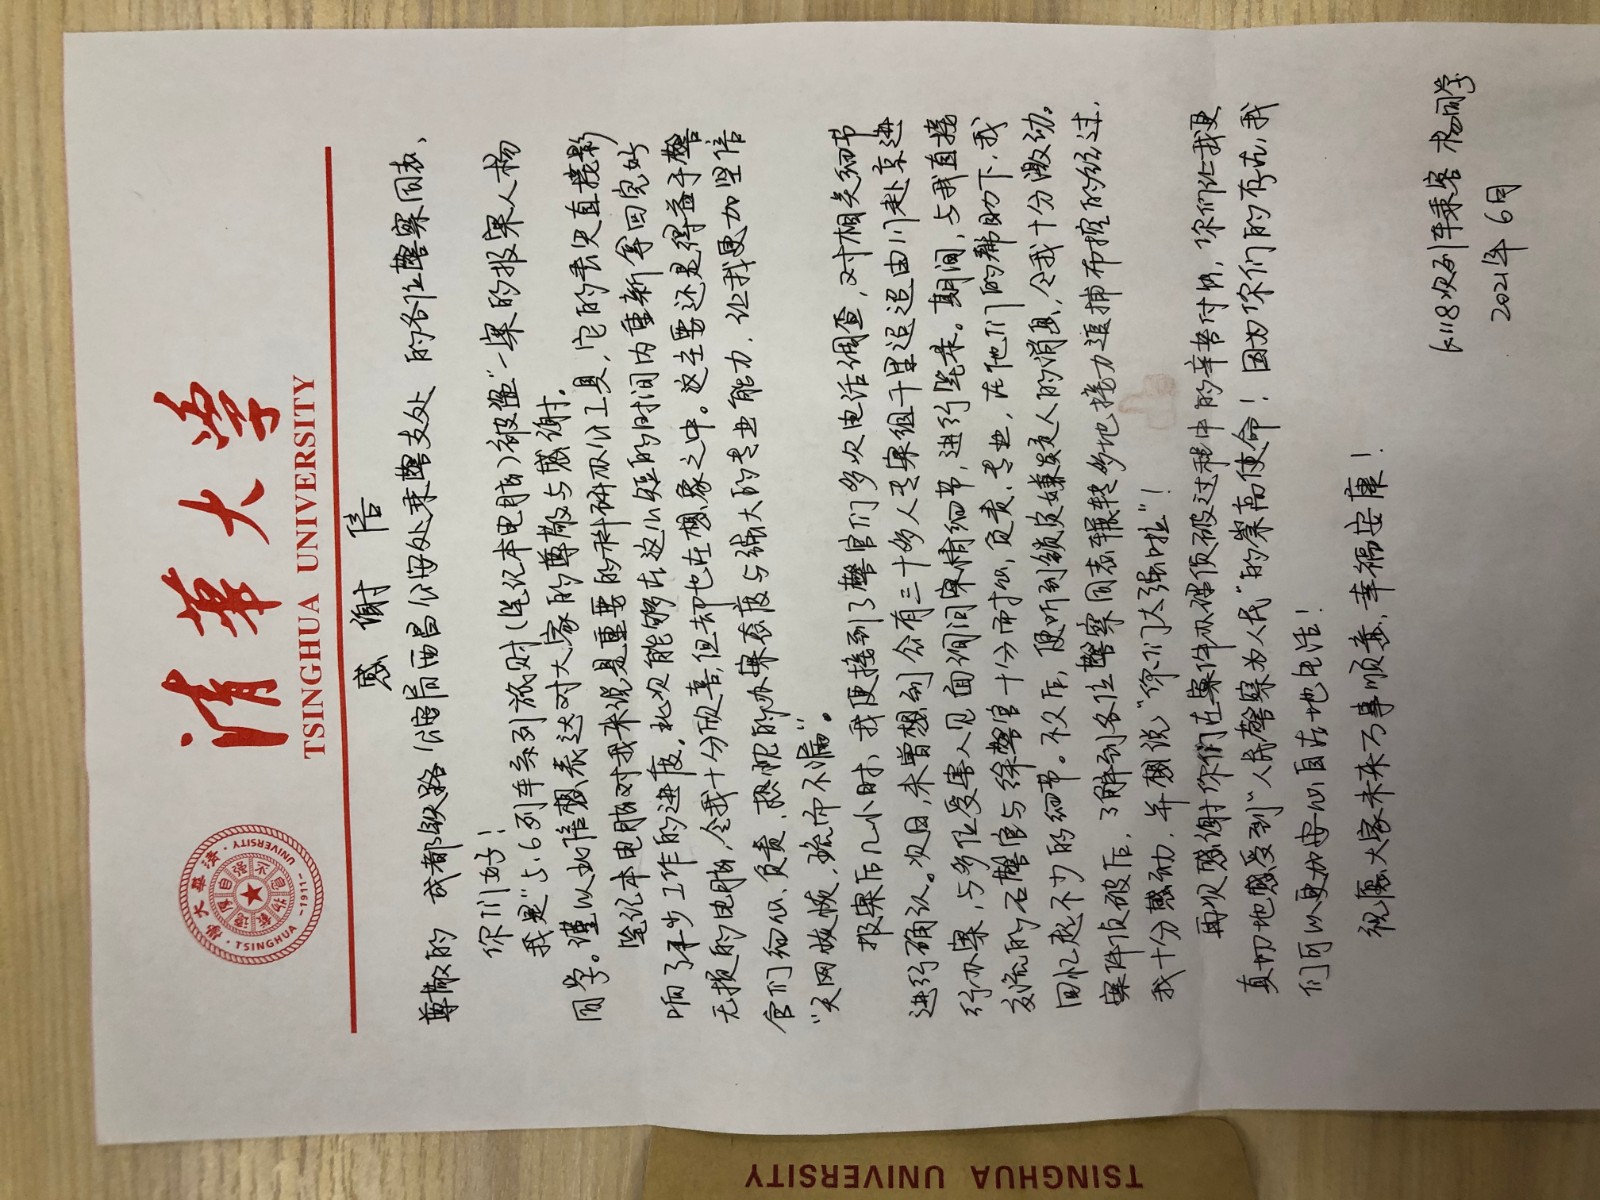 清華大學
TSINGHUA UNIVERSITY
清華大學
TSINGHUA UNIVERSITY
自强不息
厚德載物
1911
感谢信
尊敬的 成都铁路公安局西昌公安处乘警支处 的各位警察同志,
你们好!
我是"5.6列车系列旅财(笔记本电脑)被盗"一案的报案人杨
同学。谨以此信想表达对大家的尊敬与感谢。
笔记本电脑对我来说是重要的科研办公工具,它的丢失直接影
响了工作的进度。此次能够在这么短的时间内重新拿回完好
无损的电脑,令我十分欣喜,但却也在想象之中。这主要还是得益于警
官们细心、负责、热忱的办案态度与强大的专业能力,让我更加坚信
"天网恢恢,疏而不漏"。
报案后几小时,我便接到了警官们多次电话调查,对相关细节
进行确认。次日,未曾想到会有三十多人专案组千里迢迢由川赴京进
行办案,与多位受害人见面询问案情细节,进行笔录。期间,与我直接
交流的石警官与徐警官十分耐心、负责、专业,在他们的帮助下,我
回忆起不少的细节。不久后,便听到锁定嫌疑人的消息,令我十分激动。
案件侦破后,了解到各位警察同志辗转多地接力追捕布控的经过,
我十分感动,并想说"你们太强啦"!
再次感谢你们在案件办理侦破过程中的辛苦付出,你们让我更
真切地感受到"人民警察为人民"的崇高使命!因为你们的存在,我
们可以更加安心自在地生活!
祝愿大家未来万事顺意,幸福安康!
K118次列车乘客 杨同学
2021年6月
TSINGHUA UNIVERSITY